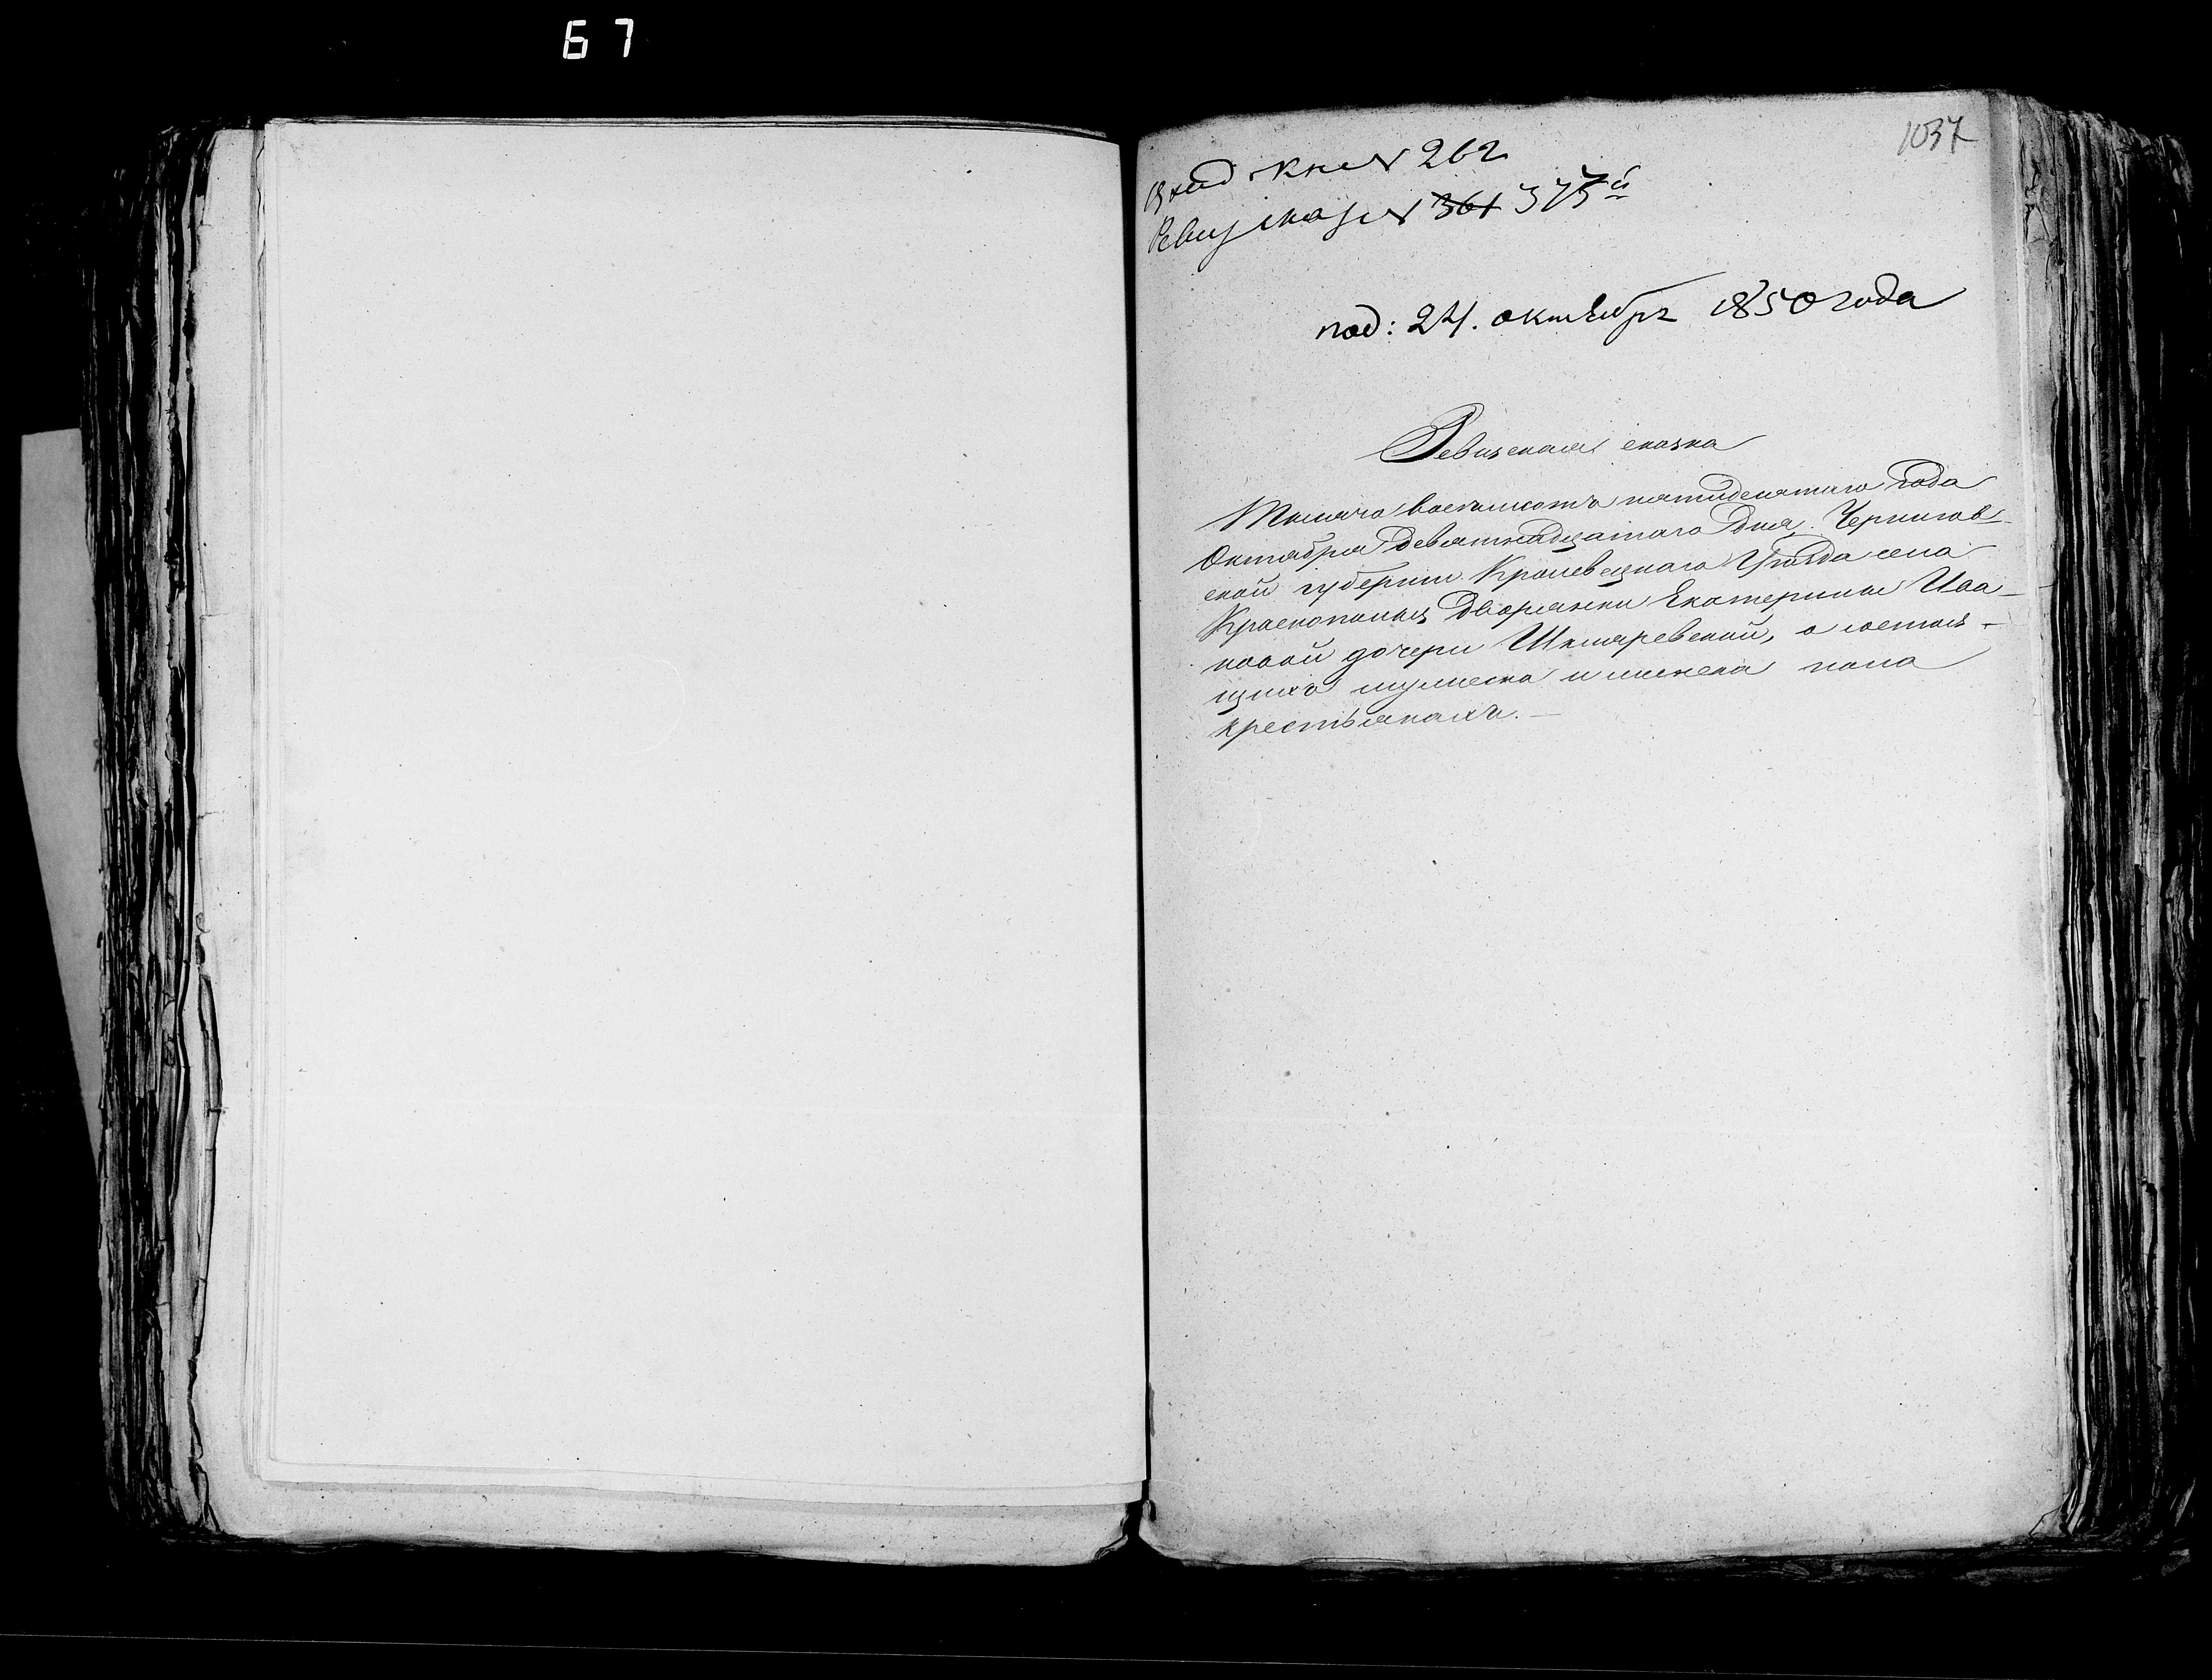 67
1037
Вход. кн. № 262
Ревиз. сказ. № 361 373й
под: 24. октября 1850 года
Ревизская сказка
Тысяча восемьсотъ пятидесятаго года
Октября девятнадцатаго дня. Чернигов-
ской губернии Кролевецкаго Уѣзда села
Краснополья Дворянки Екатерины Ива-
новой дочери Шкляревской, о состоя-
щихъ мужеска и женска пола
крестьянахъ. —